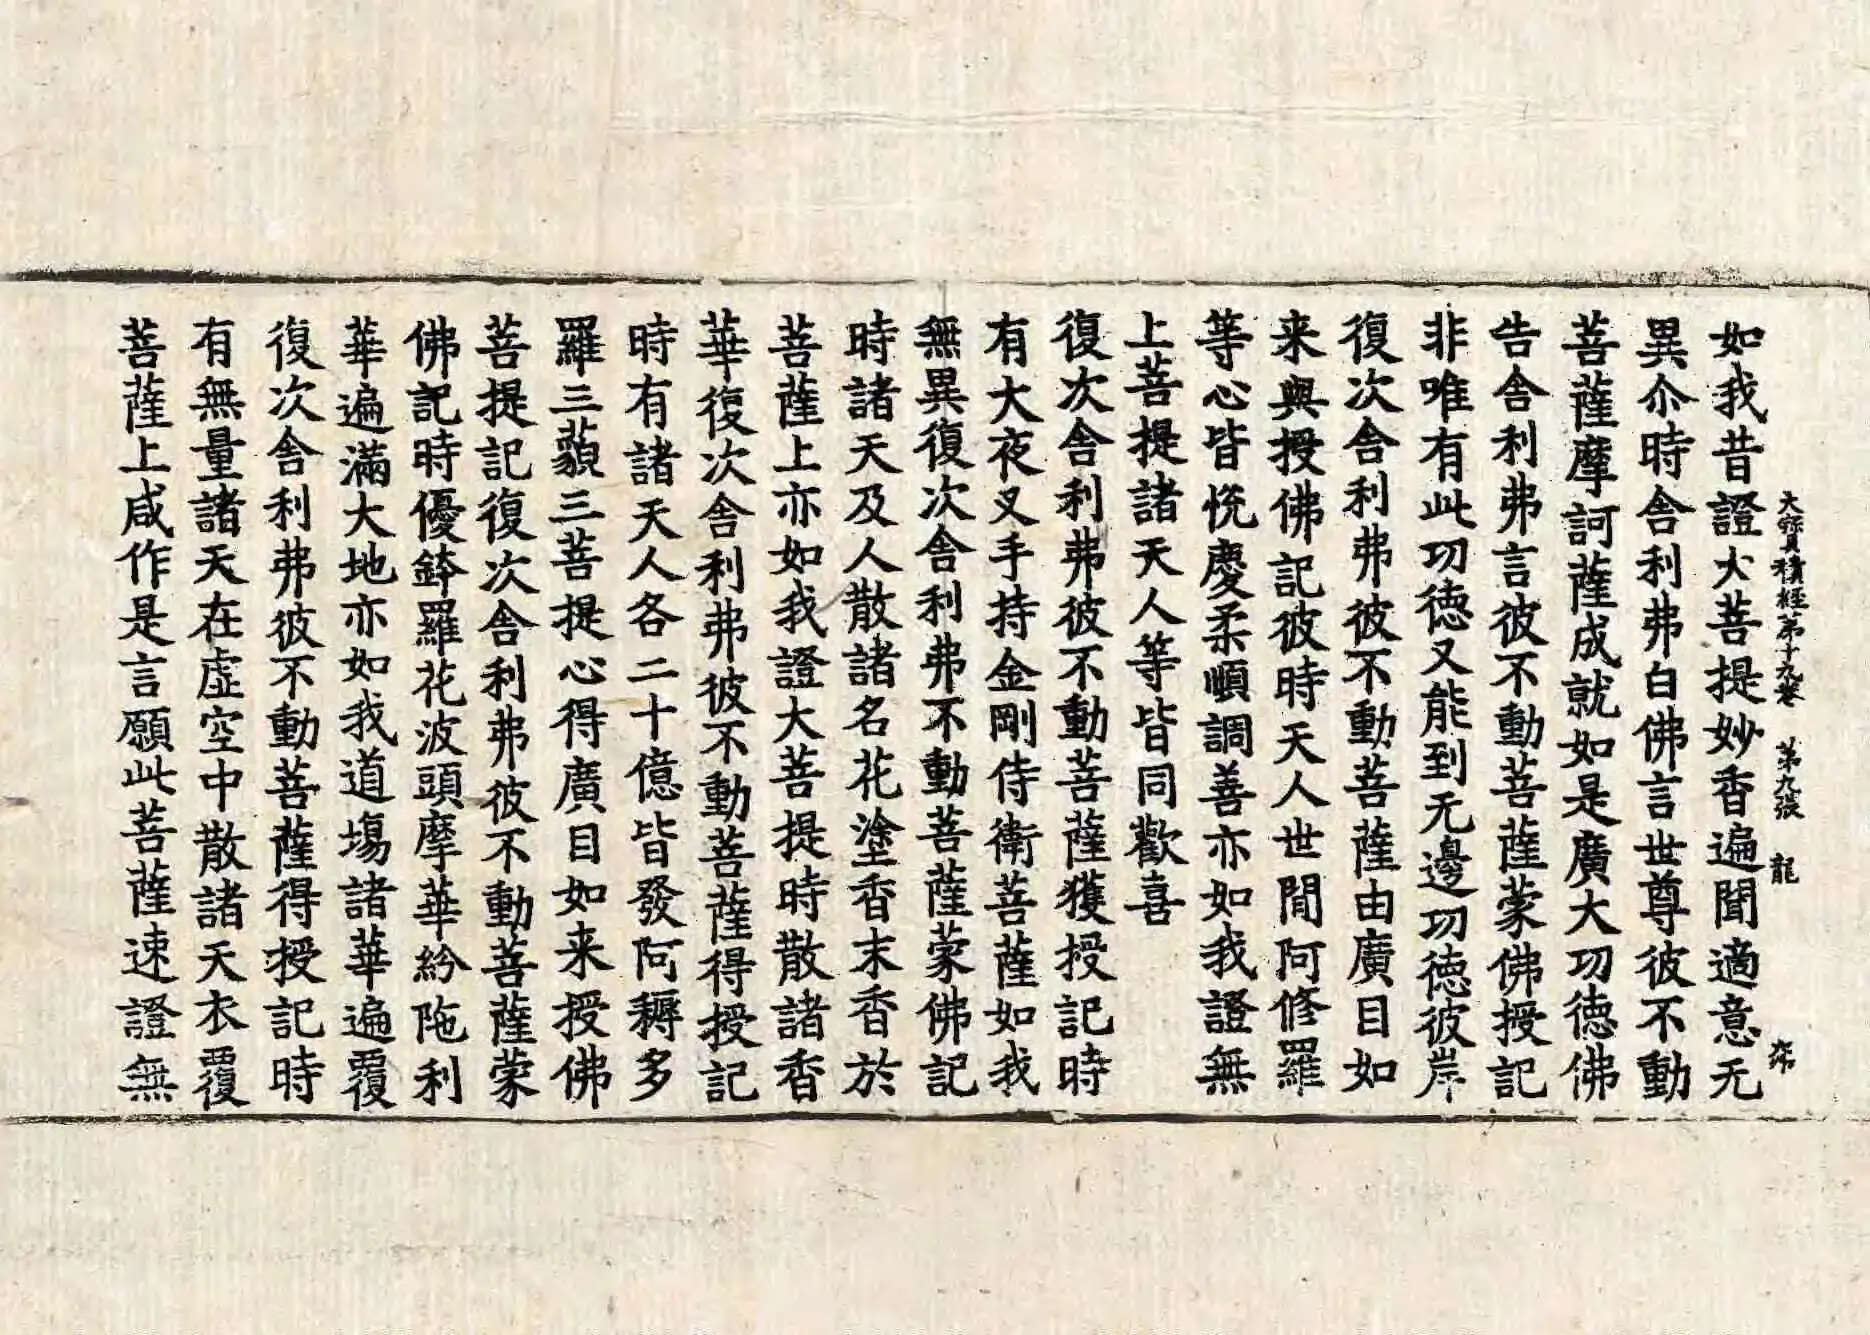 大寶積經第十九卷 第九張 龍 帝
如我昔證大菩提妙香遍聞適意无
異尒時舍利弗白佛言世尊彼不動
菩薩摩訶薩成就如是廣大功德佛
告舍利弗言彼不動菩薩蒙佛授記
非唯有此功德又能到无邊功德彼岸
復次舍利弗彼不動菩薩由廣目如
来與授佛記彼時天人世間阿修羅
等心皆悦慶柔順調善亦如我證無
上菩提諸天人等皆同歡喜
復次舍利弗彼不動菩薩獲授記時
有大夜叉手持金剛侍衛菩薩如我
無異復次舍利弗不動菩薩蒙佛記
時諸天及人散諸名花塗香末香於
菩薩上亦如我證大菩提時散諸香
華復次舍利弗彼不動菩薩得授記
時有諸天人各二十億皆發阿耨多
羅三藐三菩提心得廣目如来授佛
菩提記復次舍利弗彼不動菩薩蒙
佛記時優鉢羅花波頭摩華紛陁利
華遍滿大地亦如我道場諸華遍覆
復次舍利弗彼不動菩薩得授記時
有無量諸天在虛空中散諸天衣覆
菩薩上咸作是言願此菩薩速證無